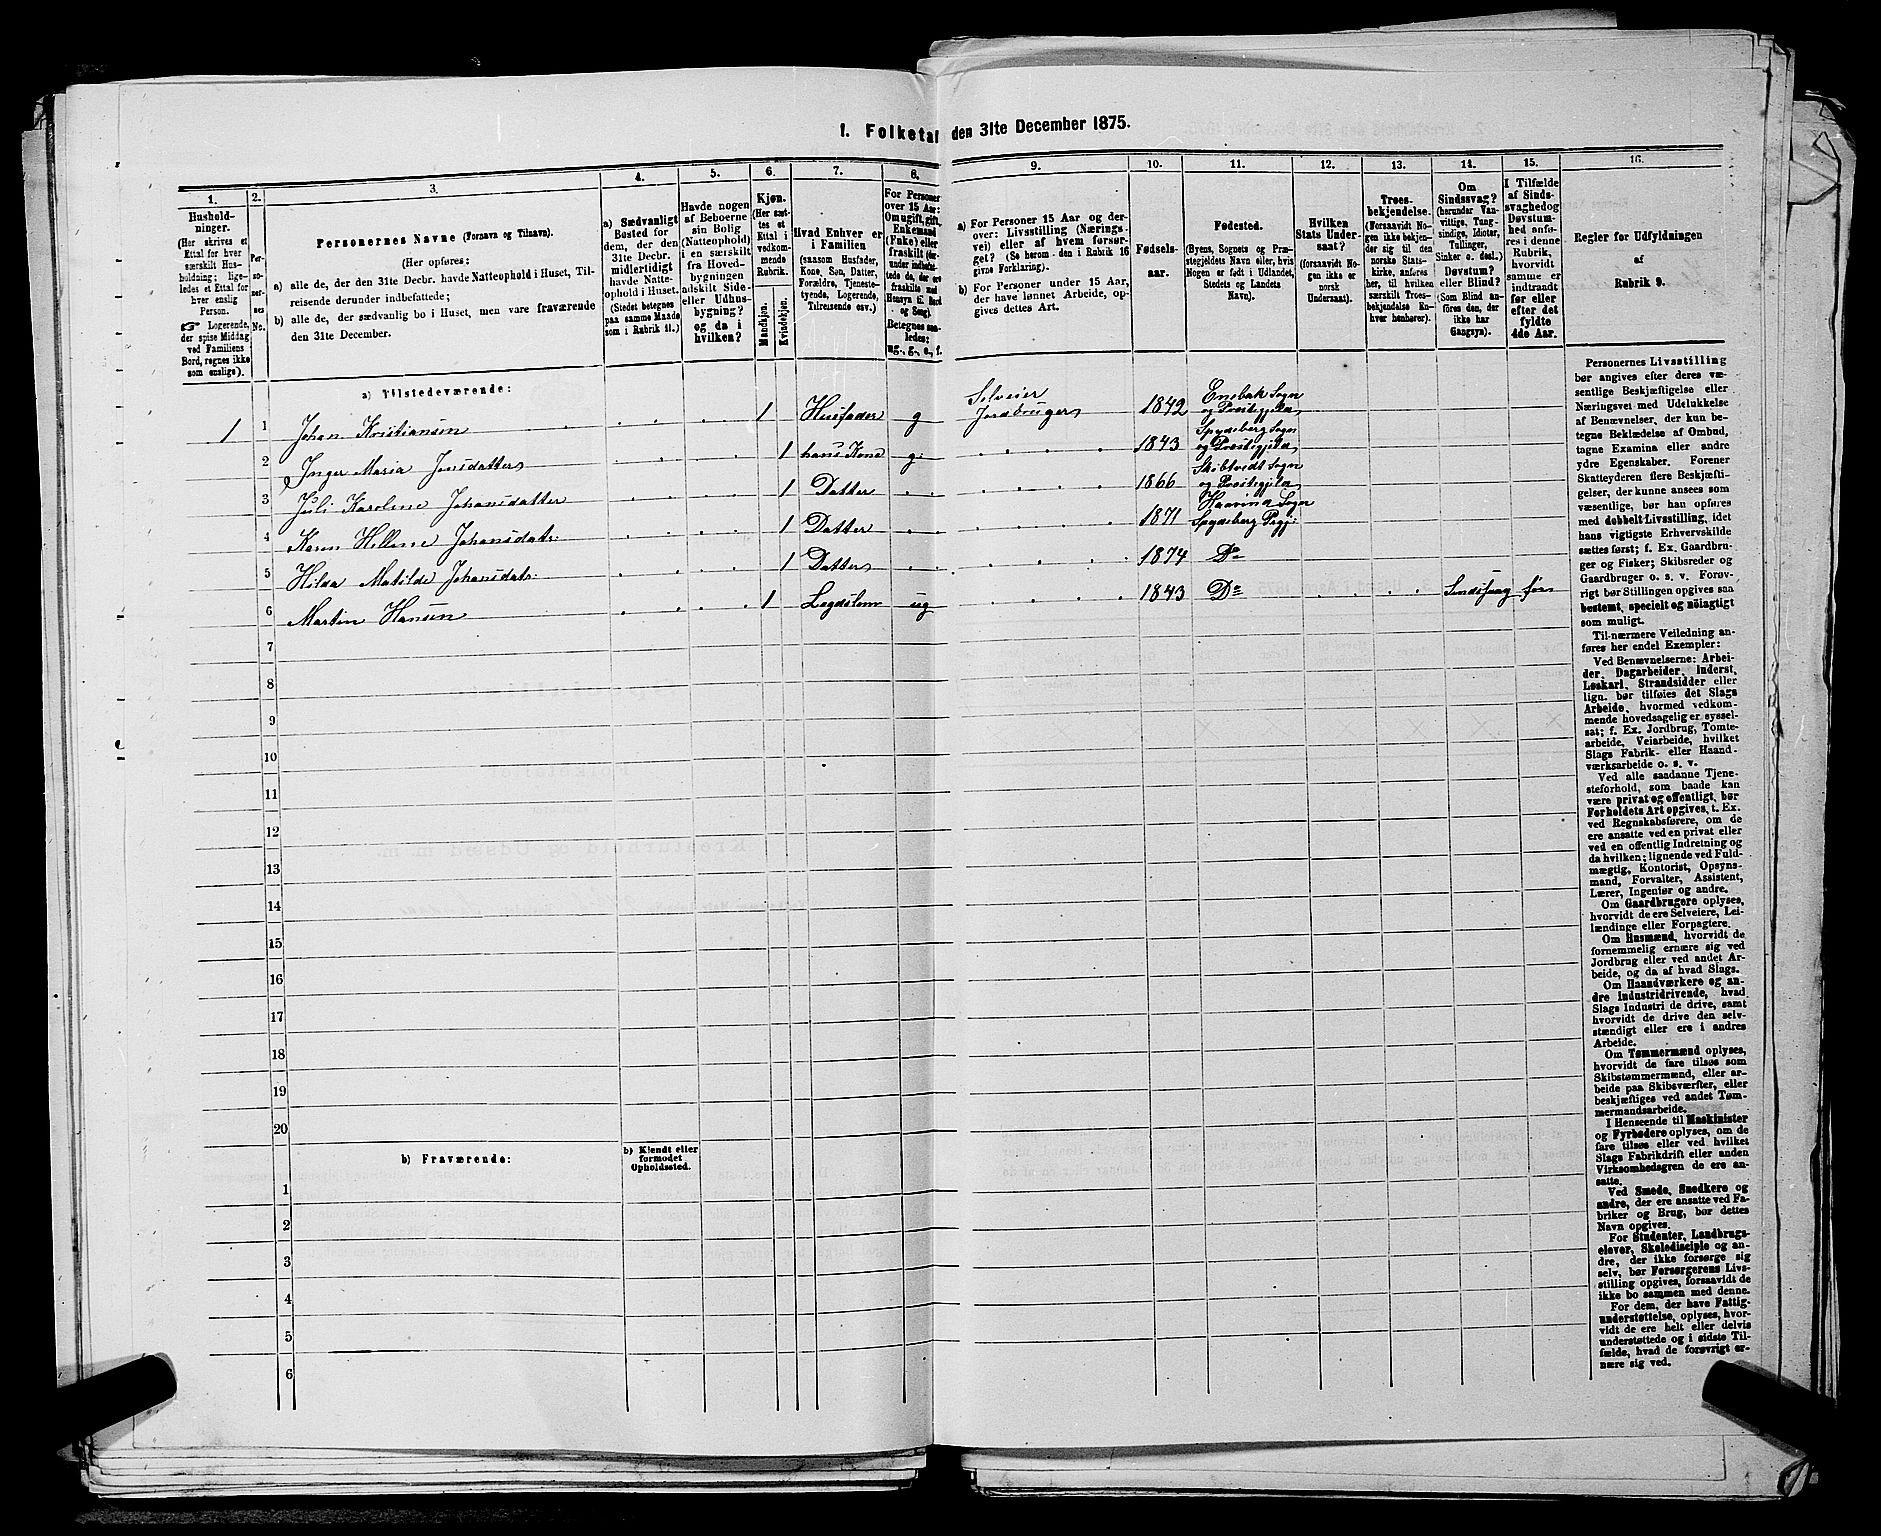 1. Folketal den 31te December 1875.
1.
Hushold-
ninger.
(Her skrives et
Ettal for hver
særskilt Hus-
holdning; lige-
ledes et Ettal for
hver enslig
Person.
☞ Logerende,
der spise Middag
ved Familiens
Bord, regnes ikke
som enslige).
2.
Per-
so-
ner-
nes
No.
3.
Personernes Navne (Fornavn og Tilnavn).
(Her opføres:
a) alle de, der den 31te Decbr. havde Natteophold i Huset, Til-
reisende derunder indbefattede;
b) alle de, der sædvanlig bo i Huset, men vare fraværende
den 31te December.
4.
a) Sædvanligt
Bosted for
dem, der den
31te Decbr.
midlertidigt
havde Natte-
ophold i Huset.
(Stedet betegnes
paa samme Maade
som i Rubrik 11.)
5.
Havde nogen
af Beboerne
sin Bolig
(Natteophold)
i en særskilt
fra Hoved-
bygningen
adskilt Side-
eller Udhus-
bygning?
og da i
hvilken?
6.
Kjøn.
(Her sæt-
tes et
Ettal i
vedkom-
mende
Rubrik.
Mandkjøn.
Kvindekjøn.
7.
Hvad Enhver er
i Familien
(saasom Husfader,
Kone, Søn, Datter,
Forældre, Tjeneste-
tyende, Logerende,
Tilreisende osv.)
8.
For Personer
over 15 Aar:
Om ugift, gift,
Enkemand
(Enke) eller
fraskilt
Betegnes saa-
ledes:
ug., g., e., f.
9.
a) For Personer 15 Aar og der-
over: Livsstilling (Nærings-
vei) eller af hvem forsør-
get? (Se herom den i Rubrik 16
givne Forklaring).
b) For Personer under 15 Aar,
der have lønnet Arbeide, op-
gives dettes Art.
10.
Fødsels-
aar.
11.
Fødested.
(Byens, Sognets og Præ-
stegjeldets Navn eller, hvis
Nogen er født i Udlandet,
Stedets og Landets
Navn).
12.
Hvilken
Stats Under-
saat?
(forsaavidt No-
gen ikke er
norsk
Undersaat).
13.
Troes-
bekjendelse.
(Forsaavidt No-
gen ikke bekjen-
der sig til den
norske Stats-
kirke, anføres
her, til hvilken
særskilt Troes-
bekjendelse En-
hver henhører).
14.
Om
Sindssvag?
(herunder Van-
vittige, Tung-
sindige, Idioter,
Tullinger,
Sinker o. desl.)
Døvstum?
eller Blind?
(Som Blind an-
føres den, der
ikke har
Gangsyn).
15.
I Tilfælde
af Sinds-
svaghed og
Døvstum-
hed anfø-
res i denne
Rubrik,
hvorvidt
samme er
indtraadt
før eller
efter det
fyldte
4de Aar.
16.
Regler for Udfyldningen
af
Rubrik 9.
a) Tilstedeværende:
1 1 Johan Kristiansen 1 Husfader g Selveier Jordbruger 1842 Enebak Sogn og Præstegjeld
2 Inger Maria Jensdatter 1 hans Kone g 1843 Spydeberg Sogn og Præstegjeld
3 Juli Karoline Johansdatter 1 Datter 1866 Skibtvedt Sogn og Præstegjeld
4 Karen Hellene Johansdatr. 1 Datter 1871 Haavind Sogn Spydeberg Prgj.
5 Hilda Matilde Johansdatr. 1 Datter 1874 Do
6 Martin Hansen 1 Lægdslem ug 1843 Do Sindssvag før
7
8
9
10
11
12
13
14
15
16
17
18
19
20
b) Fraværende:
b) Kjendt eller
formodet
Opholdssted.
1
2
3
4
5
6
Personernes Livsstilling
bør angives efter deres væ-
sentlige Beskjæftigelse eller
Næringsvei med Udelukkelse
af Benævnelser, der kun be-
tegne Beklædelse af Ombud,
tagne Examina eller andre
ydre Egenskaber. Forener
Skatteyderen flere Beskjæfti-
gelser, der kunne ansees som
væsentlige, bør han opføres
med dobbelt Livsstilling, idet
hans vigtigste Erhvervskilde
sættes først; f. Ex. Gaardbru-
ger og Fisker; Skibsreder og
Gaardbruger o. s. v. Forøv-
rigt bør Stillingen opgives saa
bestemt, specielt og nöiagtigt
som muligt.
Til nærmere Veiledning an-
føres her endel Exempler:
Ved Benævnelserne: Arbei-
der, Dagarbeider, Inderst,
Løskarl, Strandsidder eller
lign. bør tilføies det Slags
Arbeide, hvormed vedkom-
mende hovedsagelig er syssel-
sat; f. Ex. Jordbrug, Tomte-
arbeide, Veiarbeide, hvilket
Slags Fabrik- eller Haand-
værksarbeide o. s. v.
Ved alle saadanne Tjene-
steforhold, som baade kan
være privat og offentligt, bør
Forholdets Art opgives, t. Ex.
ved Regnskabsførere, om de
ere ansatte ved en privat eller
ved en offentlig Indretning og
da hvilken; lignende ved Fuld-
mægtig, Kontorist, Opsyns-
mand, Forvalter, Assistent,
Lærer, Ingeniør og andre.
Om Gaardbrugere oplyses,
hvorvidt de ere Selveiere, Lei-
lændinge eller Forpagtere.
Om Husmænd, hvorvidt de
fornemmelig ernære sig ved
Jordbrug eller ved andet Ar-
beide, og da af hvad Slags.
Om Haandværkere og an-
dre Industridrivende, hvad
Slags Industri de drive, samt
hvorvidt de drive den selv-
stændigt eller ere i andres
Arbeide.
Om Tømmermænd oplyses,
hvorvidt de fare tilsøs som
Skibstømmermænd, eller ar-
beide paa Skibsværfter, eller
beskjæftiges ved andet Tøm-
mermandsarbeide.
I Henseende til Maskinister
og Fyrbødere oplyses, om de
fare tilsøs eller ved hvilket
Slags Fabrikdrift eller anden
Virksomhedsgren de ere an-
satte.
Ved Smede, Snedkere og
andre, der ere ansatte ved Fa-
briker og Brug, bør dettes
Navn opgives.
For Studenter, Landbrugs-
elever, Skoledisciple og an-
dre, der ikke forsørge sig
selv, bør Forsørgerens Livs-
stilling opgives, forsaavidt de
ikke bo sammen med denne.
For dem, der have Fattig-
understøttelse, oplyses, hvor-
vidt de ere helt eller delvis
understøttede og i sidste Til-
fælde, hvad de forøvrigt er-
nære sig ved.